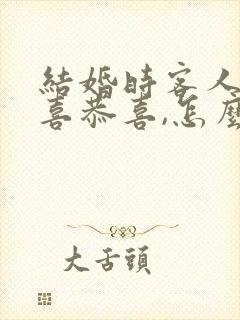 結婚時客人
喜恭喜,怎麼
大舌頭